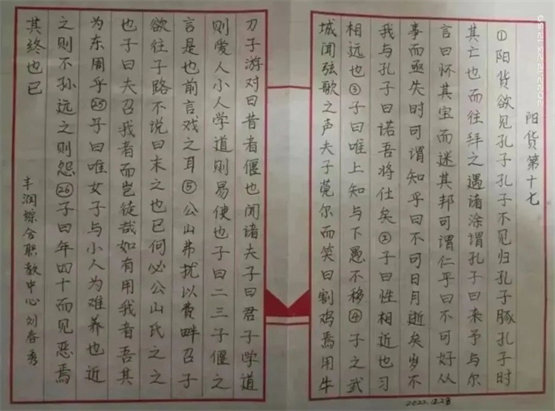 阳货第十七
①阳货欲见孔子孔子不见归孔子豚孔子时
其亡也而往拜之遇诸涂谓孔子曰来予与尔
言曰怀其宝而迷其邦可谓仁乎曰不可好从
事而亟失时可谓知乎曰不可日月逝矣岁不
我与孔子曰诺吾将仕矣②子曰性相近也习
相远也③子曰唯上知与下愚不移④子之武
城闻弦歌之声夫子莞尔而笑曰割鸡焉用牛
刀子游对曰昔者偃也闻诸夫子曰君子学道
则爱人小人学道则易使也子曰二三子偃之
言是也前言戏之耳⑤公山弗扰以费畔召子
欲往子路不说曰末之也已何必公山氏之之
也子曰夫召我者而岂徒哉如有用我者吾其
为东周乎㉕子曰唯女子与小人为难养也近
之则不孙远之则怨㉖子曰年四十而见恶焉
其终也已
丰润综合职教中心刘春秀